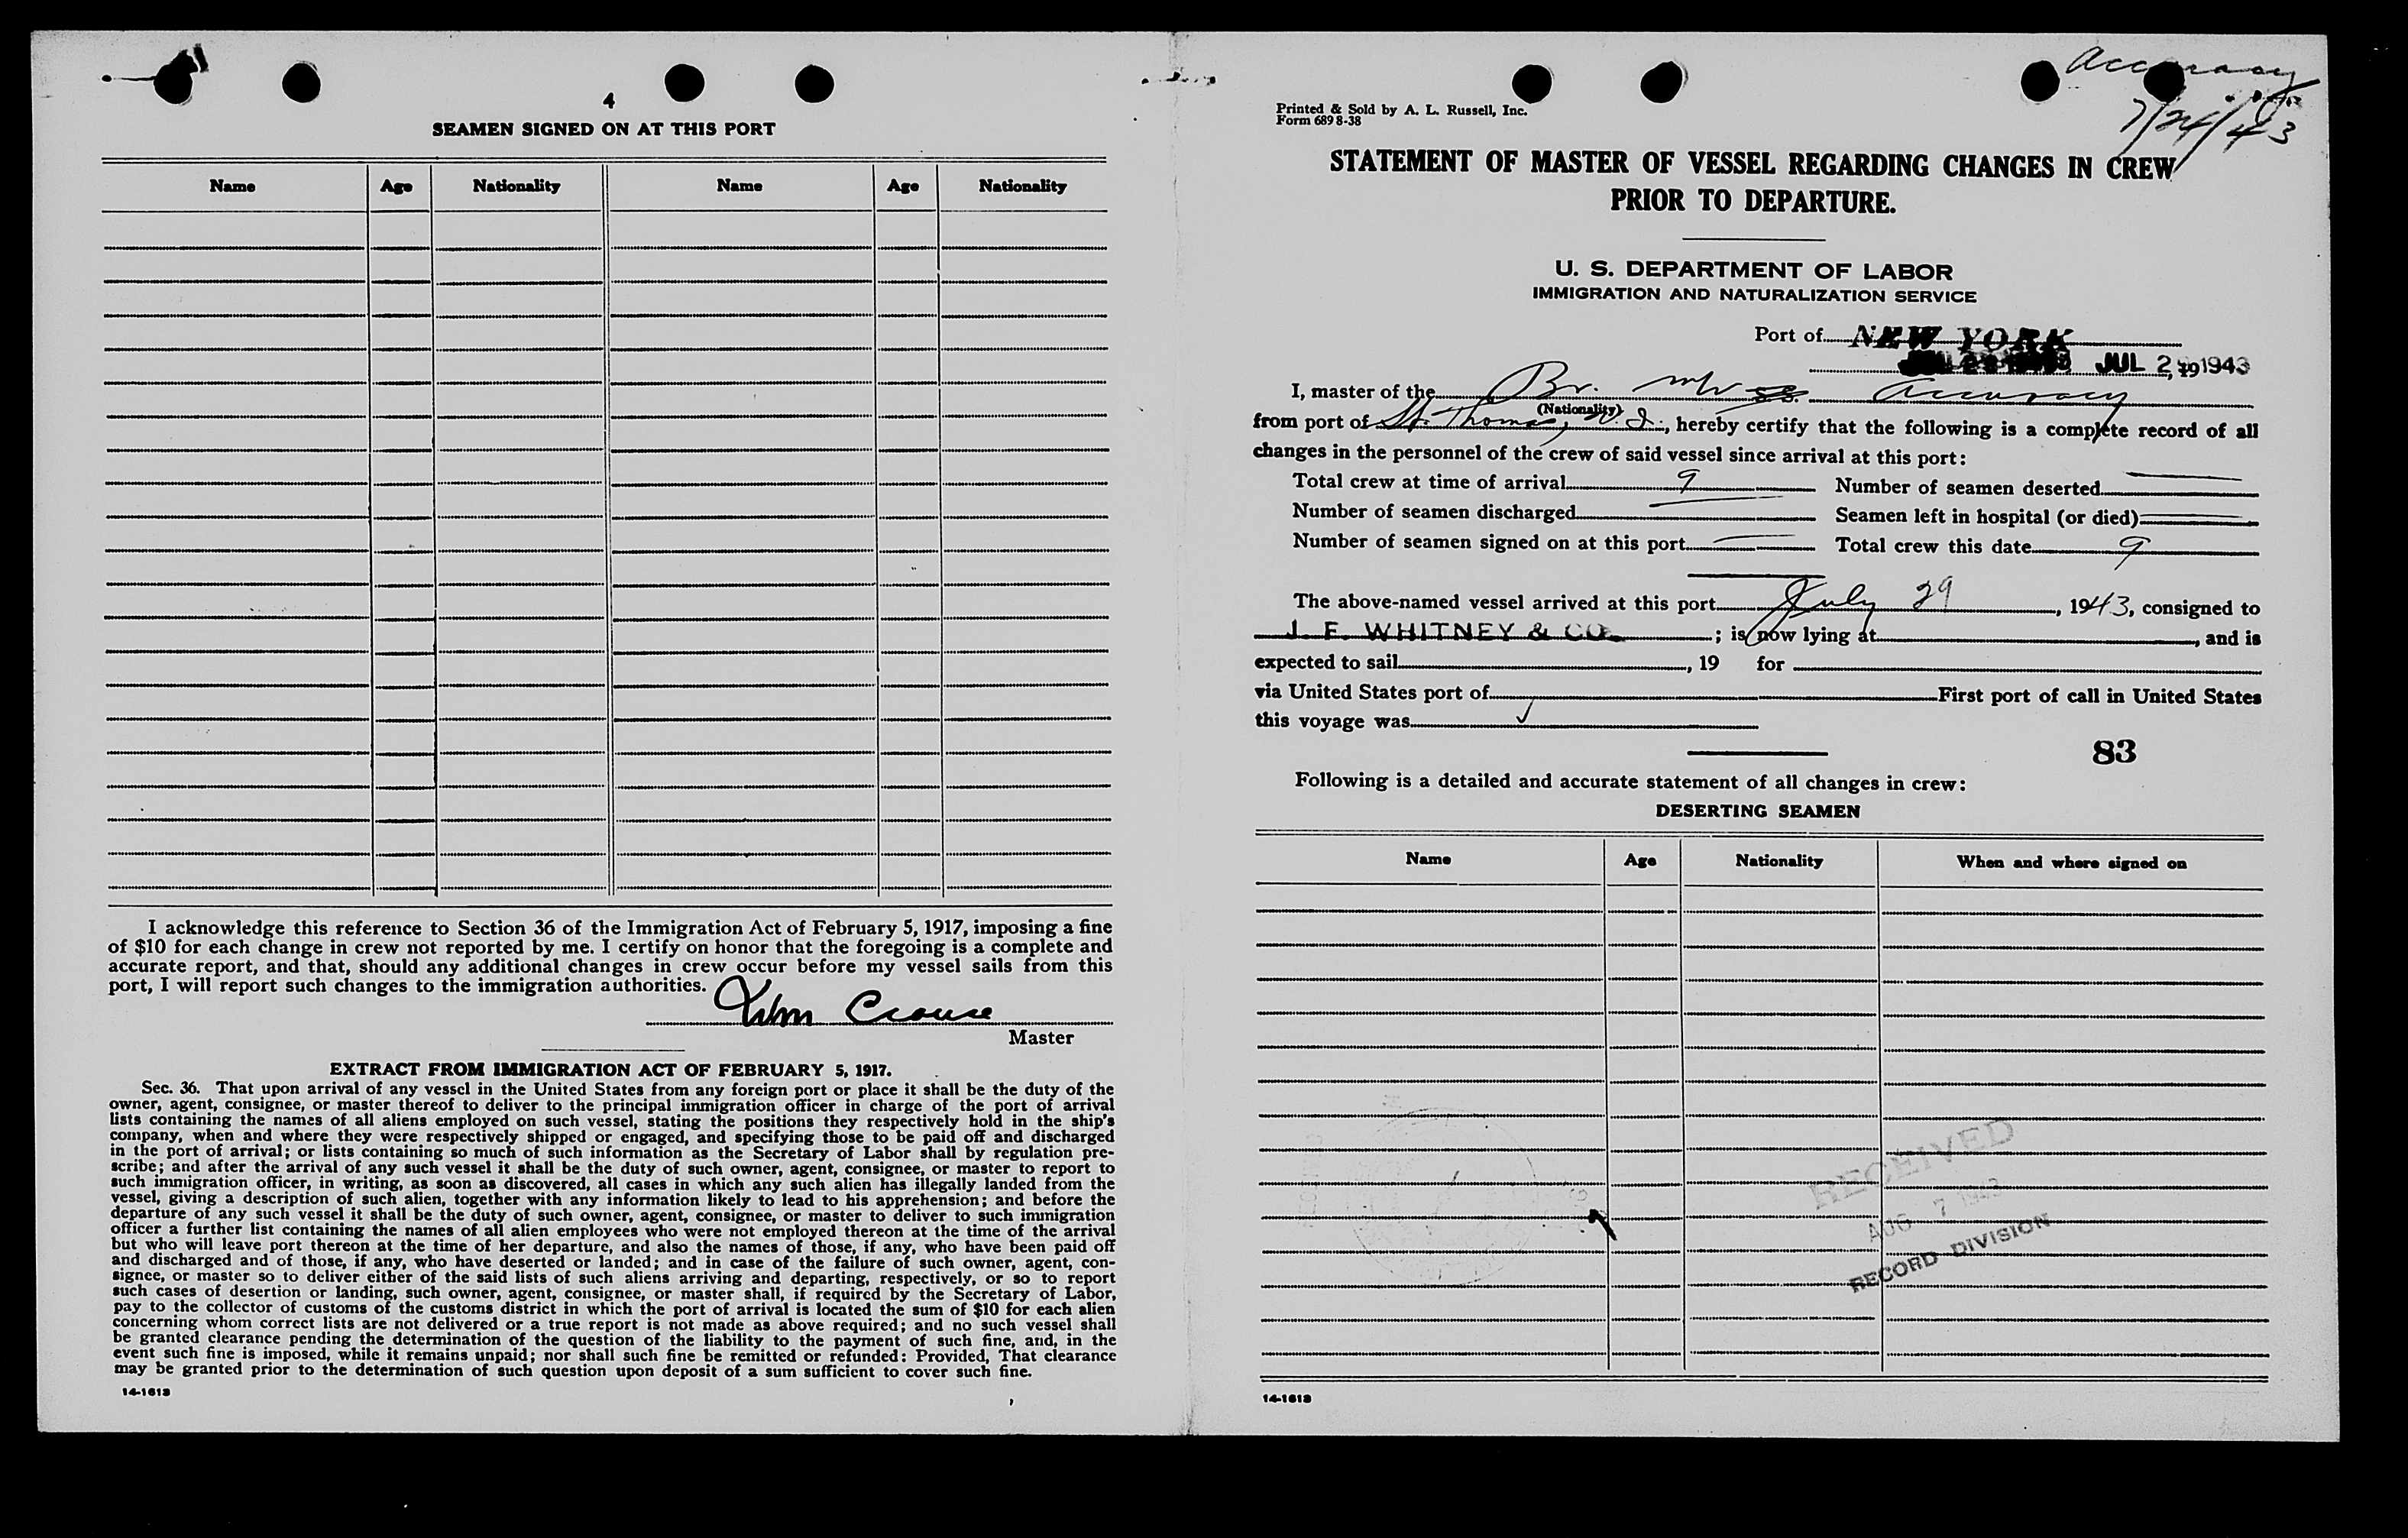 4
SEAMEN SIGNED ON AT THIS PORT
Name Age Nationality Name Age Nationality
I acknowledge this reference to Section 36 of the Immigration Act of February 5, 1917, imposing a fine
of $10 for each change in crew not reported by me. I certify on honor that the foregoing is a complete and
accurate report, and that, should any additional changes in crew occur before my vessel sails from this
port, I will report such changes to the immigration authorities.
Crouse
Master
EXTRACT FROM IMMIGRATION ACT OF FEBRUARY 5, 1917.
Sec. 36. That upon arrival of any vessel in the United States from any foreign port or place it shall be the duty of the
owner, agent, consignee, or master thereof to deliver to the principal immigration officer in charge of the port of arrival
lists containing the names of all aliens employed on such vessel, stating the positions they respectively hold in the ship's
company, when and where they were respectively shipped or engaged, and specifying those to be paid off and discharged
in the port of arrival; or lists containing so much of such information as the Secretary of Labor shall by regulation pre-
scribe; and after the arrival of any such vessel it shall be the duty of such owner, agent, consignee, or master to report to
such immigration officer, in writing, as soon as discovered, all cases in which any such alien has illegally landed from the
vessel, giving a description of such alien, together with any information likely to lead to his apprehension; and before the
departure of any such vessel it shall be the duty of such owner, agent, consignee, or master to deliver to such immigration
officer a further list containing the names of all alien employees who were not employed thereon at the time of the arrival
but who will leave port thereon at the time of her departure, and also the names of those, if any, who have been paid off
and discharged and of those, if any, who have deserted or landed; and in case of the failure of such owner, agent, con-
signee, or master so to deliver either of the said lists of such aliens arriving and departing, respectively, or so to report
such cases of desertion or landing, such owner, agent, consignee, or master shall, if required by the Secretary of Labor,
pay to the collector of customs of the customs district in which the port of arrival is located the sum of $10 for each alien
concerning whom correct lists are not delivered or a true report is not made as above required; and no such vessel shall
be granted clearance pending the determination of the question of the liability to the payment of such fine, and, in the
event such fine is imposed, while it remains unpaid; nor shall such fine be remitted or refunded: Provided, That clearance
may be granted prior to the determination of such question upon deposit of a sum sufficient to cover such fine.
14-1613
Accuracy
7/24/43
Printed & Sold by A. L. Russell, Inc.
Form 689 8-38
STATEMENT OF MASTER OF VESSEL REGARDING CHANGES IN CREW
PRIOR TO DEPARTURE.
U. S. DEPARTMENT OF LABOR
IMMIGRATION AND NATURALIZATION SERVICE
Port of NEW YORK
JUL 2, 19 1943
I, master of the Br. M/V SS. Accuracy
(Nationality)
from port of St. Thomas, V. I., hereby certify that the following is a complete record of all
changes in the personnel of the crew of said vessel since arrival at this port:
Total crew at time of arrival 9 Number of seamen deserted
Number of seamen discharged Seamen left in hospital (or died)
Number of seamen signed on at this port Total crew this date 9
The above-named vessel arrived at this port July 29, 1943, consigned to
J. F. WHITNEY & CO.; is now lying at, and is
expected to sail, 19 for
via United States port of First port of call in United States
this voyage was ✓
83
Following is a detailed and accurate statement of all changes in crew:
DESERTING SEAMEN
Name Age Nationality When and where signed on
RECEIVED
AUG 7 1943
RECORD DIVISION
14-1613